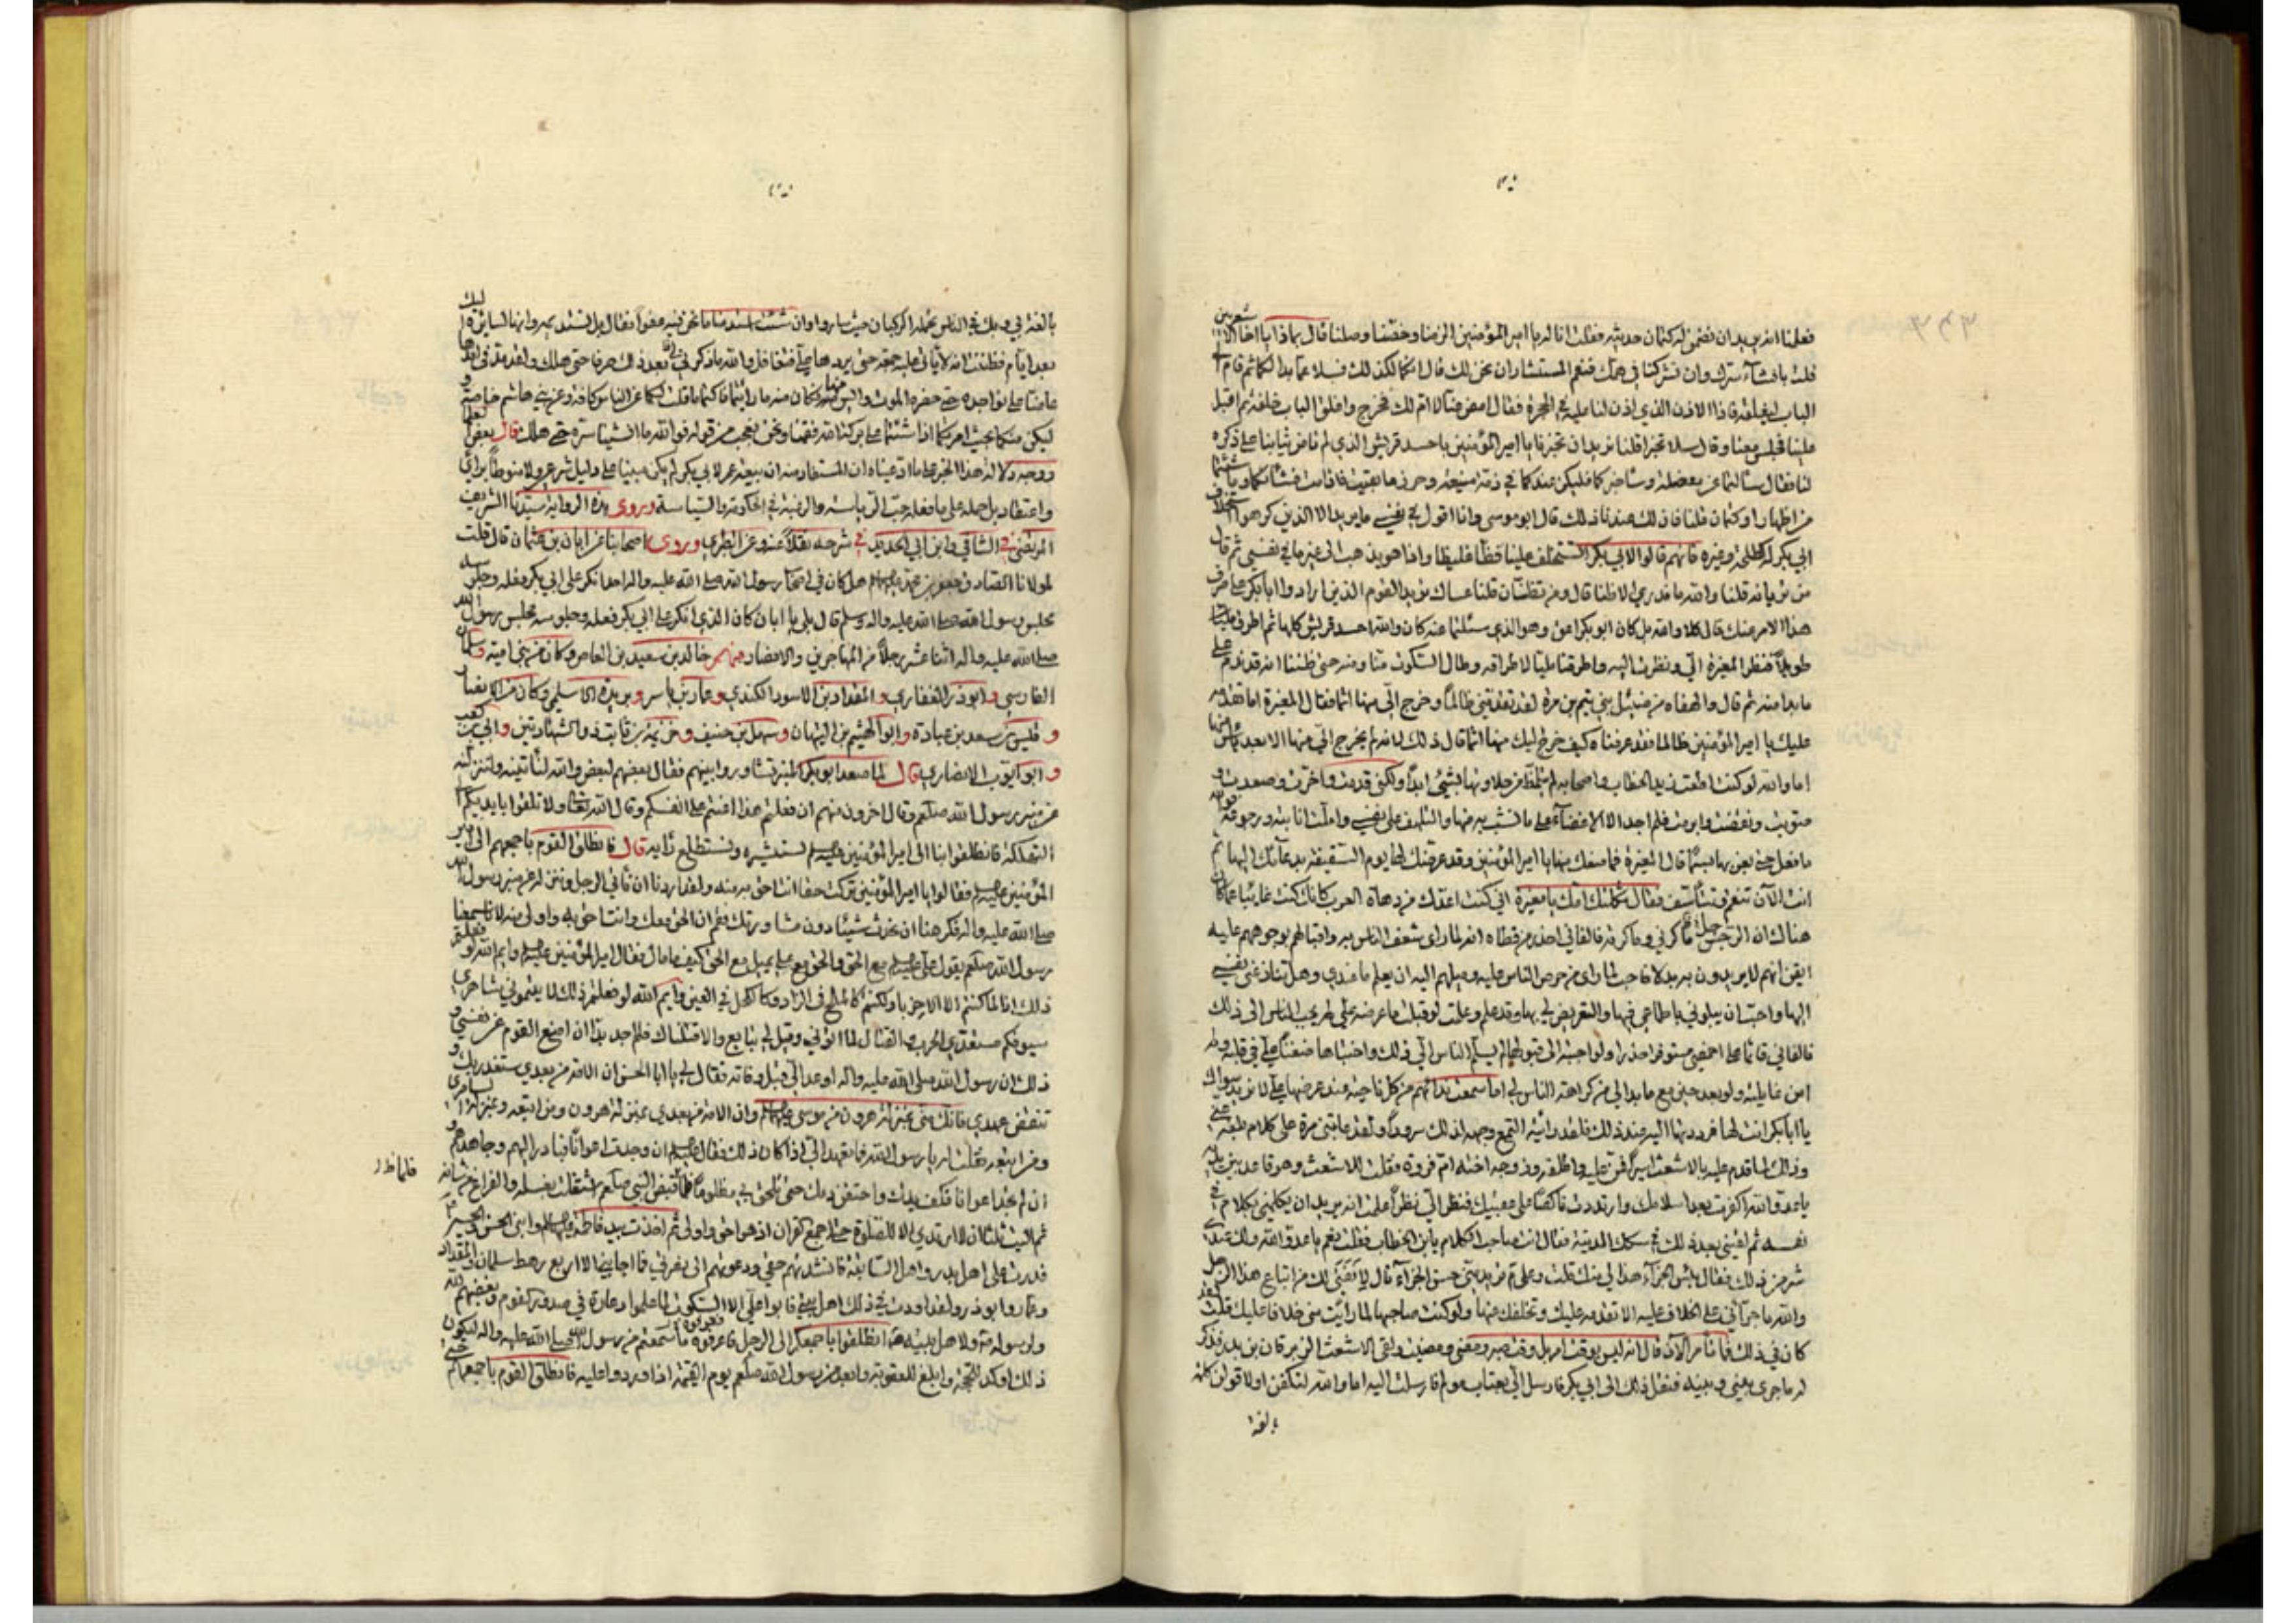 فعلمنا انه يريد ان نضمن له كتمان حديثه فقلت انا له يا امير المؤمنين الزمنا وخصنا وصلنا قال بماذا يا اخا الاشعريين
قلت بافشاء سرك وان تشركنا في همك فنعم المستشاران نحن لك قال انكما كذلك فسلا عما بدا لكما ثم قام الى
الباب ليغلقه فاذا الاذن الذي اذن لنا عليه في الحجرة فقال امض عنا لا ام لك فخرج واغلق الباب خلفه ثم اقبل
علينا فجلس معنا وقال سلا تخبرا قلنا نريد ان تخبرنا يا امير المؤمنين باحسد قريش الذي لم تامن ثيابنا على ذكره
لنا فقال سالتما عن معضلة وساخبركما فليكن عندكما في ذمة منيعة وحرز ما بقيت فاذا مت فشانكما وما شئتما
من اظهار او كتمان قلنا فان لك عندنا ذلك قال ابو موسى وانا اقول في نفسي ما يريد الا الذين كرهوا استخلاف
ابي بكر له كطلحة وغيره فانهم قالوا لابي بكر اتستخلف علينا فظا غليظا واذا هو يذهب الى غير ما في نفسي ثم قال
من تريانه قلنا والله ما ندري الا ظنا قال ومن تظنان قلنا عساك تريد القوم الذين ارادوا ابا بكر على صرف
هذا الامر عنك قال كلا والله بل كان ابو بكر اعق وهو الذي سئلتما عنه كان والله احسد قريش كلها ثم اطرق مليا
طويلا فنظر المغيرة الي ونظرت اليه واطرقنا مليا لاطراقه وطال السكوت منا ومنه حتى ظننا انه قد ندم على
ما بدا منه ثم قال والهفاه من ضئيل بني تيم بن مرة لقد تقدمني ظالما وخرج الي منها اثما فقال المغيرة اما تقدمه
عليك يا امير المؤمنين ظالما فقد عرفناه كيف خرج اليك منها اثما قال ذلك لانه لم يخرج الي منها الا بعد ياس منها
اما والله لو كنت اطعت زيد بن الخطاب واصحابه لم يتلمظ من حلاوتها بشيء ابدا ولكني قدمت واخرت وصعدت و
صوبت ونقضت وابرمت فلم اجد الا الاغضاء على ما نشب به منها والتلهف على نفسي واملت انابته ورجوعه فوالله
ما فعل حتى نغر بها بشما قال المغيرة فما منعك منها يا امير المؤمنين وقد عرضك لها يوم السقيفة بدعائك اليها ثم
انت الآن تنقم وتتأسف فقال ثكلتك امك يا مغيرة اني كنت اعدك من دهاة العرب كانك كنت غائبا عما كان
هناك ان الرجل ماكرني فماكرته والفاني احذر من قطاة انه لما راى شغف الناس به واقبالهم بوجوههم عليه
ايقن انهم لا يريدون به بدلا فاحب لما راى من حرص الناس عليه وميلهم اليه ان يعلم ما عندي وهل تنازعني نفسي
اليها واحب ان يبلوني باطماعي فيها والتعريض لي بها وقد علم وعلمت لو قبلت ما عرضه علي لم يجب الناس الى ذلك
فالفاني قائما على اخمصي مستوفزا حذرا ولو اجبته الى قبولها لم يسلم الناس الي ذلك واختباها ضغنا علي في قلبه ولم
امن غائلته ولو بعد حين مع ما بدا لي من كراهة الناس لي اما سمعت نداءهم من كل ناحية عند عرضها علي لا نريد سواك
يا ابا بكر انت لها فرددتها اليه عند ذلك فلقد رايته التمع وجهه لذلك سرورا ولقد عاتبني مرة على كلام بلغه عني
وذلك لما قدم عليه بالاشعث اسيرا فمن عليه واطلقه وزوجه اخته ام فروة فقلت للاشعث وهو قاعد بين يديه
يا عدو الله اكفرت بعد اسلامك وارتددت ناكصا على عقبيك فنظر الي نظرا علمت انه يريد ان يكلمني بكلام في
نفسه ثم لقيني بعد ذلك في سكك المدينة فقال انت صاحب الكلام يابن الخطاب فقلت نعم يا عدو الله ولك عندي
شر من ذلك فقال بئس الجزاء هذا لي منك قلت وعلام تريد مني حسن الجزاء قال لانفتي لك من اتباع هذا الرجل
والله ما جرأني على الخلاف عليه الا تقدمه عليك وتخلفك عنها ولو كنت صاحبها لما رايت مني خلافا عليك قلت لقد
كان في ذلك فما تأمر الآن قال انه ليس بوقت امر بل وقت صبر ومضى ومضيت ولقى الاشعث الزبرقان بن بدر فذكر
له ما جرى بيني وبينه فنقل ذلك الى ابي بكر فارسل الي بعتاب مولم فارسلت اليه اما والله لتكفن او لاقولن كلمة
بالغة
بالغة بي وبك في الناس تحملها الركبان حيث ساروا وان شئت استدمنا ما نحن فيه عفوا فقال بل نستديمه وانها لصائرة اليك
بعد ايام فظننت انه لا ياتي عليه جمعة حتى يردها علي فتغافل والله ما ذكرني بعد ذلك حرفا حتى هلك ولقد مد في امدها
عاضا على نواجذه حتى حضره الموت وايس منها فكان منه ما رايتما فاكتما ما قلت لكما عن الناس كافة وعن بني هاشم خاصة و
ليكن منكما بحيث امرتكما اذا شئتما على بركة الله فقمنا ونحن نعجب من قوله فوالله ما افشينا سره حتى هلك قال بعض
ووجه دلالة هذا الخبر على ما ادعيناه ان المستفاد منه ان بيعة عمر لابي بكر لم يكن مبنيا على دليل شرعي ولا منوطا براي
واعتقاد بل حمله على ما فعله حب الرياسة والرغبة في الحكومة والسياسة وروى هذه الرواية سيدنا الشريف
المرتضى في الشافي وابن ابي الحديد في شرحه نقلا عنه وعن الطبري وروى اصحابنا عن ابان بن عثمان قال قلت
لمولانا الصادق جعفر بن محمد هل كان في اصحاب رسول الله صلى الله عليه واله احد انكر على ابي بكر فعله وجلوسه
مجلس رسول الله صلى الله عليه واله وسلم قال بلى يا ابان كان الذي انكر على ابي بكر فعله وجلوسه مجلس رسول الله
صلى الله عليه واله اثنا عشر رجلا من المهاجرين والانصار منهم خالد بن سعيد بن العاص وكان من بني امية وسلمان
الفارسي وابو ذر الغفاري والمقداد بن الاسود الكندي وعمار بن ياسر وبريدة الاسلمي وكان من الانصار
و قيس بن سعد بن عبادة وابو الهيثم بن التيهان وسهل بن حنيف وخزيمة بن ثابت ذو الشهادتين وابي بن كعب
و ابو ايوب الانصاري قال لما صعد ابو بكر المنبر تشاوروا بينهم فقال بعضهم لبعض والله لنأتينه ولننزلنه
عن منبر رسول الله صلعم وقال اخرون منهم ان فعلتم هذا اعنتم على انفسكم وقال الله تعالى ولا تلقوا بايديكم الى
التهلكة فانطلقوا بنا الى امير المؤمنين عليه السلم نستشيره ونستطلع رأيه قال فانطلق القوم باجمعهم الى امير
المؤمنين عليه السلم فقالوا يا امير المؤمنين تركت حقا انت احق به منه ولقد اردنا ان نأتي الرجل وننزله عن منبر رسول الله
صلى الله عليه واله فكرهنا ان نحدث شيئا دون مشاورتك فعم ان الحق معك وانت احق به واولى منه لانا سمعنا
رسول الله صلعم يقول علي مع الحق والحق مع علي يميل مع الحق كيف ما مال فقال امير المؤمنين عليه السلم وايم الله لو فعلتم
ذلك لما كنتم الا الاحزبا ولكنتم كالملح في الزاد وكالكحل في العين وايم الله لو فعلتم ذلك لاتيتموني شاهري
سيوفكم مستعدي للحرب والقتال لما اتوني وقيل لي بايع والا قتلناك فلم اجد بدا ان ادفع القوم عن نفسي و
ذلك ان رسول الله صلى الله عليه واله اوعد الي قبل وفاته فقال لي يا ابا الحسن ان الامة من بعدي ستغدر بك و
تنقض عهدي فانك مني بمنزلة هرون من موسى عليهما السلم وان الامة من بعدي بمنزلة هرون ومن اتبعه وبمنزلة السامري
ومن اتبعه فقلت له يا رسول الله فما تعهد الي اذا كان ذلك فقال عليه السلم ان وجدت اعوانا فبادر اليهم وجاهدهم و
ان لم تجد اعوانا فكف يدك واحقن دمك حتى تلحق بي مظلوما فلما قبض النبي صلعم اشتغلت بغسله والفراغ من شانه
ثم اليت ان لا ارتدي الا للصلوة حتى اجمع القرآن ثم اخذت بيد فاطمة وابني الحسن والحسين
فدرت على اهل بدر واهل السابقة فانشدتهم حقي ودعوتهم الى نصرتي فما اجابني الا اربع رهط سلمان والمقداد
وعمار وابو ذر ولقد اودت في ذلك اهل بيتي فابوا علي الا السكوت لما علموا وغارة في صدور القوم وبغضهم لله
ولرسوله ولاهل بيته فانطلقوا باجمعكم الى الرجل فاعرفوه ما سمعتم من رسول الله صلى الله عليه واله ليكون
ذلك اوكد للحجة وابلغ للعقوبة وابعد من رسول الله صلعم يوم القيمة اذا وردوا عليه فانطلق القوم باجمعهم حتى